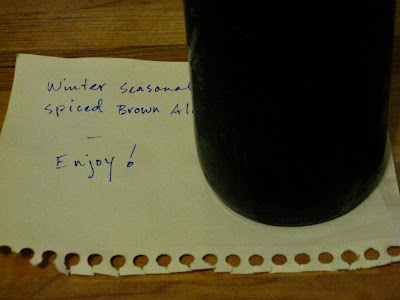 Winter Seasonal
Spiced Brown Ale
—
Enjoy!